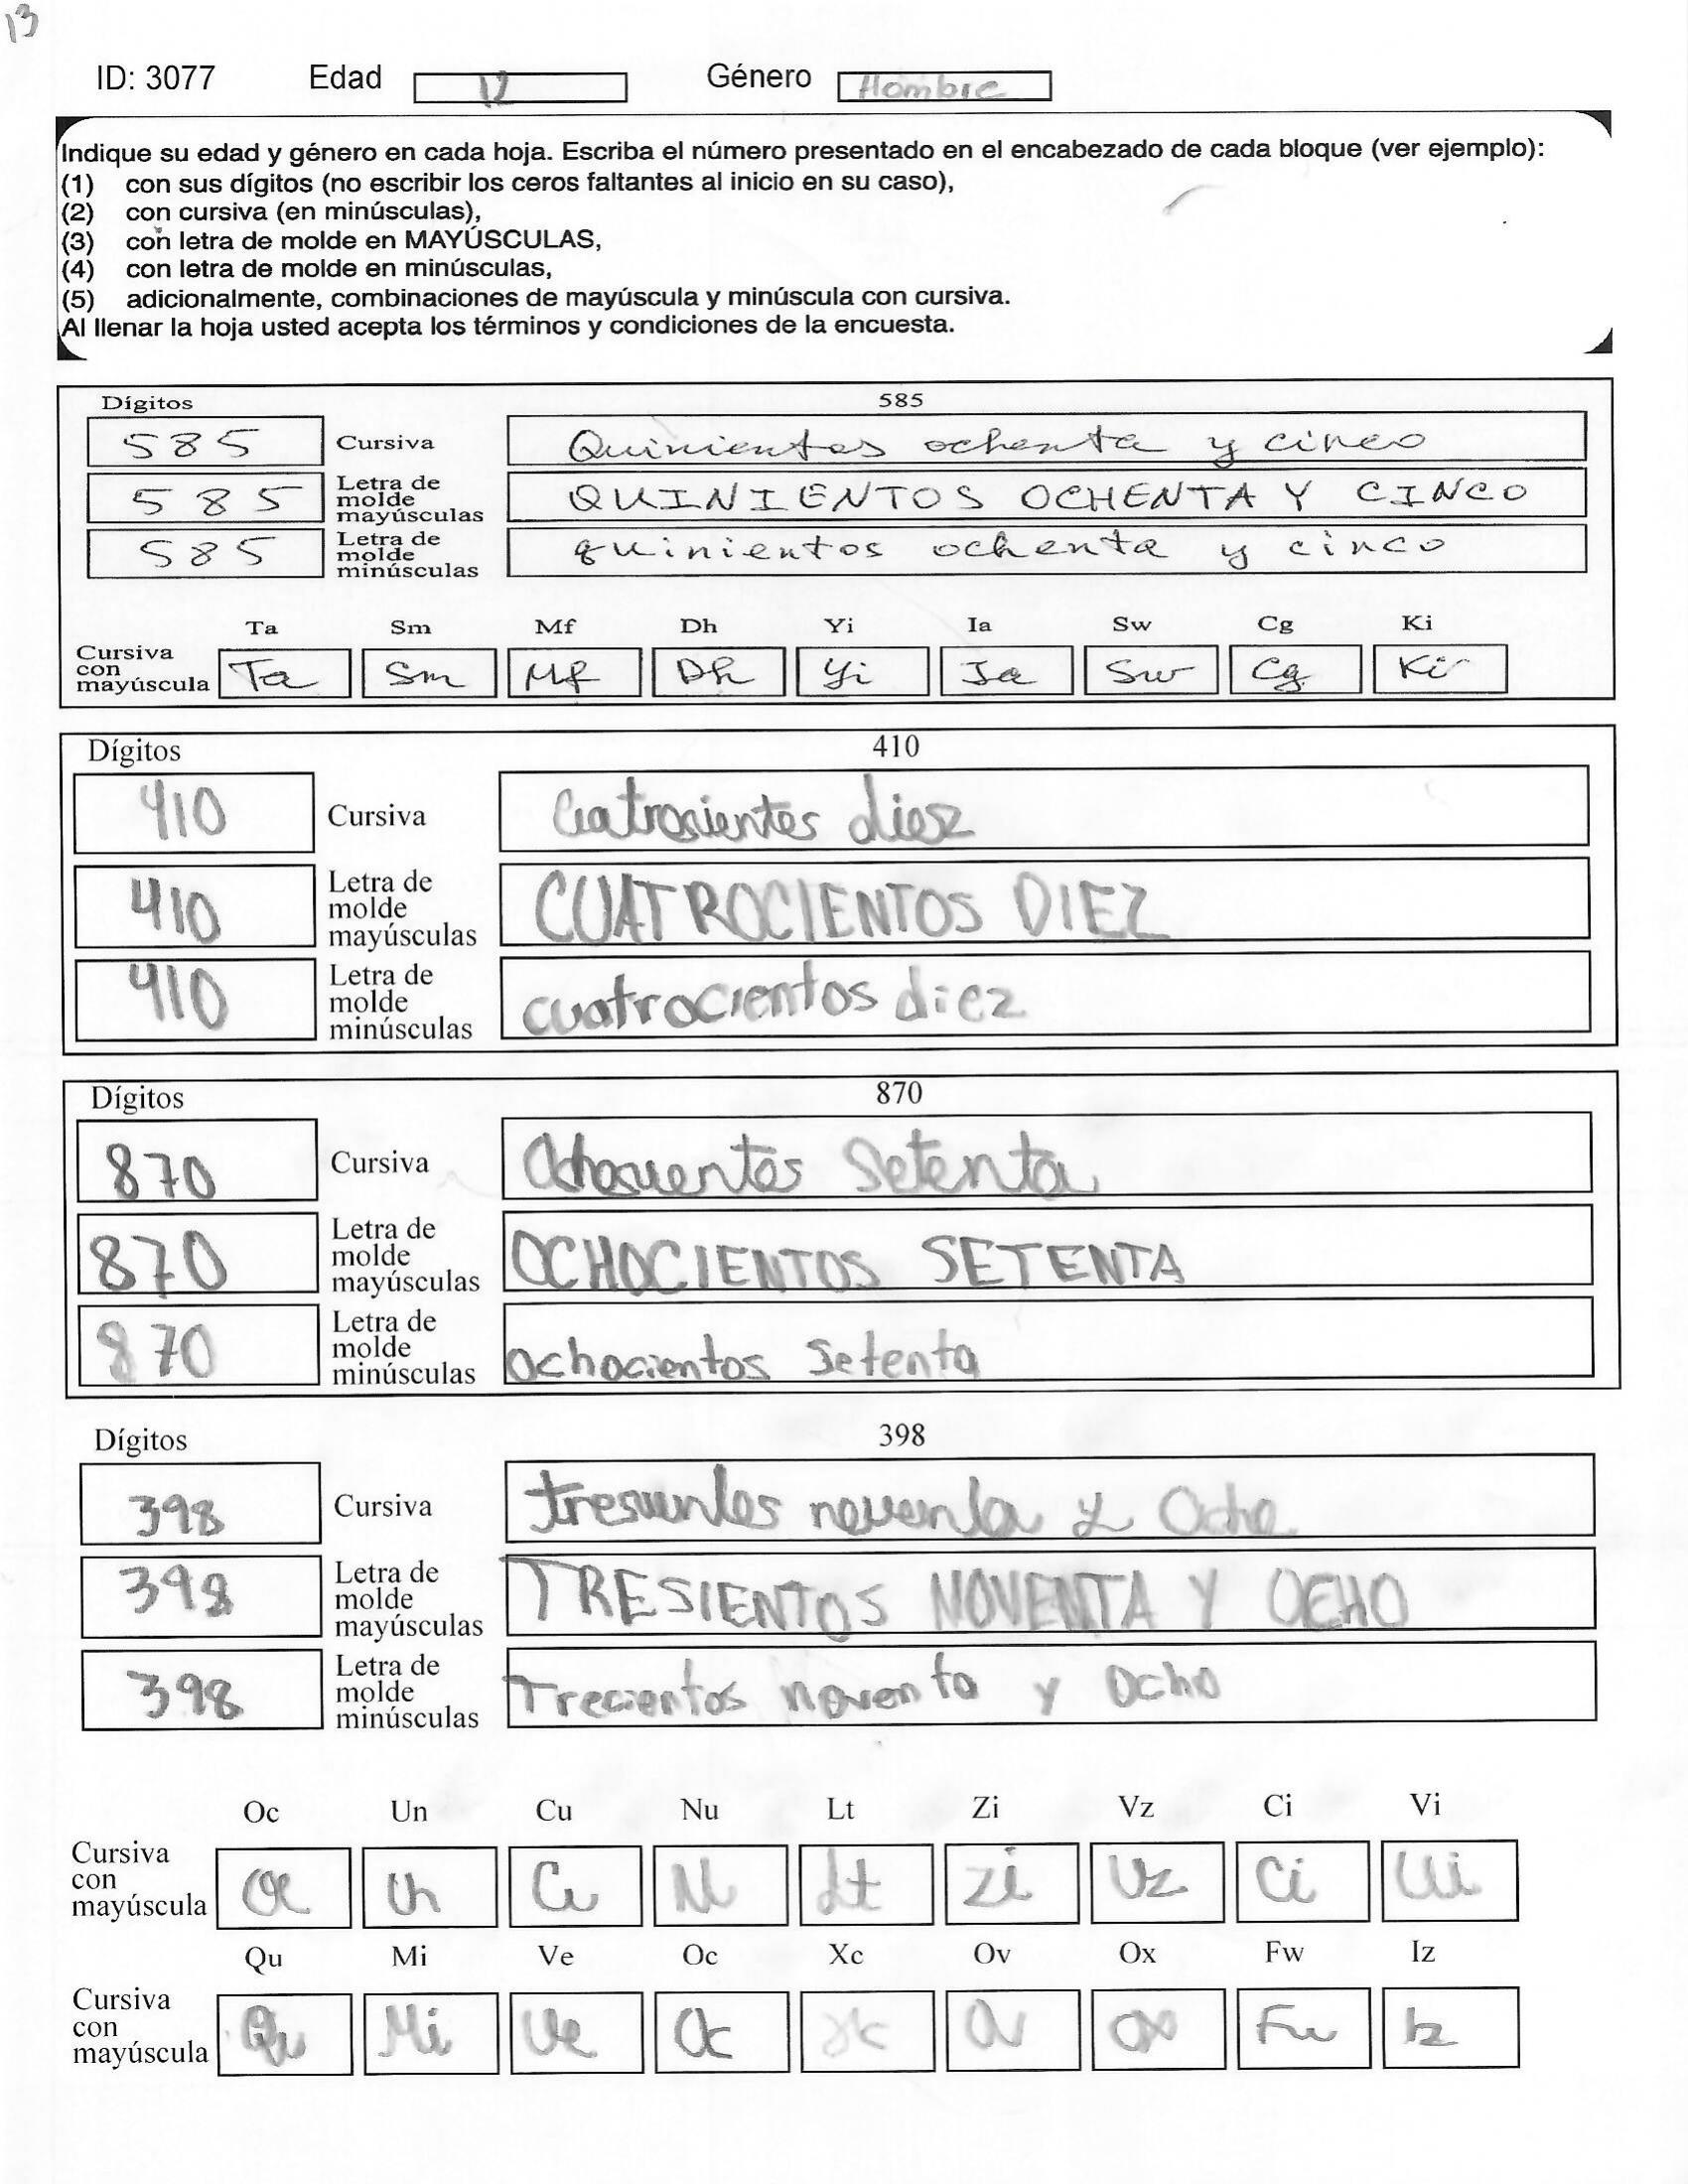 13
ID: 3077 Edad 12 Género Hombre
Indique su edad y género en cada hoja. Escriba el número presentado en el encabezado de cada bloque (ver ejemplo):
(1) con sus dígitos (no escribir los ceros faltantes al inicio en su caso),
(2) con cursiva (en minúsculas),
(3) con letra de molde en MAYÚSCULAS,
(4) con letra de molde en minúsculas,
(5) adicionalmente, combinaciones de mayúscula y minúscula con cursiva.
Al llenar la hoja usted acepta los términos y condiciones de la encuesta.
Dígitos 585
585 Cursiva Quinientos ochenta y cinco
585 Letra de molde mayúsculas QUINIENTOS OCHENTA Y CINCO
585 Letra de molde minúsculas quinientos ochenta y cinco
Ta Sm Mf Dh Yi Ia Sw Cg Ki
Cursiva con mayúscula Ta Sm Mf Dh Yi Ia Sw Cg Ki
Dígitos 410
410 Cursiva Cuatrocientos diez
410 Letra de molde mayúsculas CUATROCIENTOS DIEZ
410 Letra de molde minúsculas cuatrocientos diez
Dígitos 870
870 Cursiva Ochocientos Setenta
870 Letra de molde mayúsculas OCHOCIENTOS SETENTA
870 Letra de molde minúsculas ochocientos Setenta
Dígitos 398
398 Cursiva tresientos noventa y Ocho
398 Letra de molde mayúsculas TRESIENTOS NOVENTA Y OCHO
398 Letra de molde minúsculas Trecientos noventa y Ocho
Oc Un Cu Nu Lt Zi Vz Ci Vi
Cursiva con mayúscula Oc Un Cu Nu Lt Zi Vz Ci Vi
Qu Mi Ve Oc Xc Ov Ox Fw Iz
Cursiva con mayúscula Qu Mi Ve Oc Xc Ov Ox Fw Iz